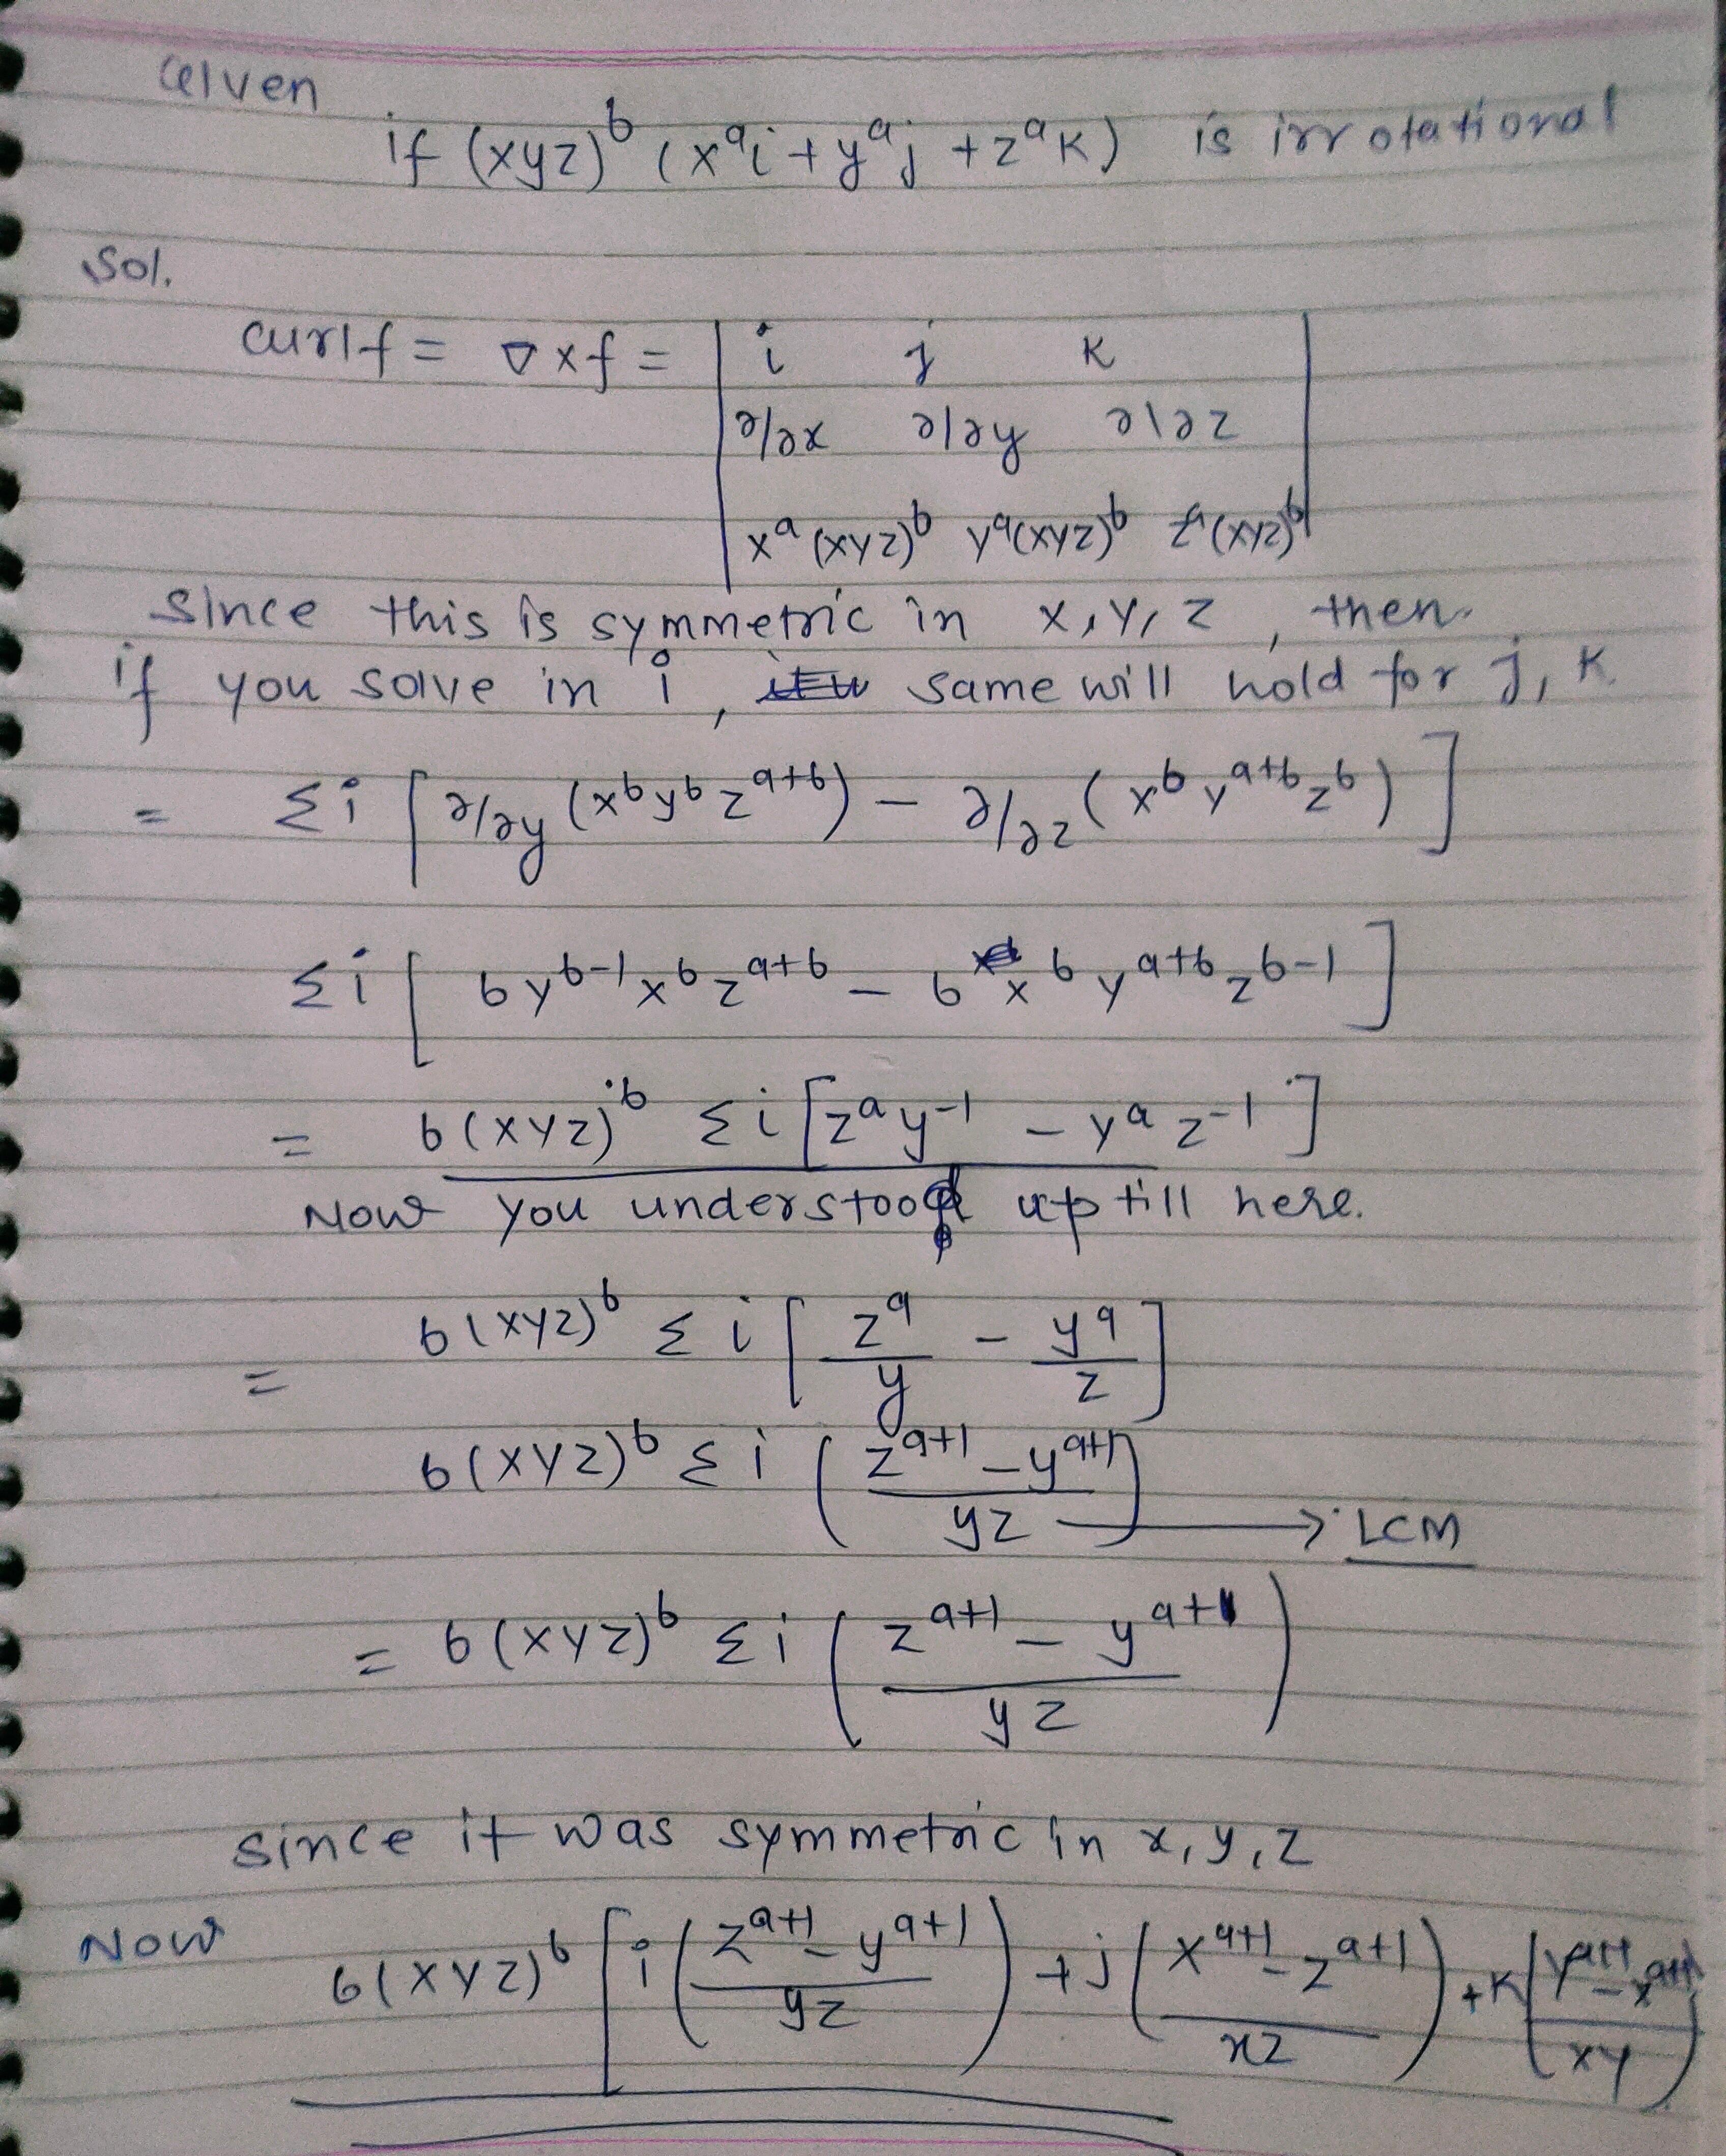 Given
if (xyz)^b (x^a i + y^a j + z^a k) is irrotational
Sol.
curl f = ∇ x f = | i j k |
| ∂/∂x ∂/∂y ∂/∂z |
| x^a (xyz)^b y^a (xyz)^b z^a (xyz)^b |
Since this is symmetric in x, y, z, then
if you solve in i, same will hold for j, k
= Σi [ ∂/∂y (x^b y^b z^(a+b)) - ∂/∂z (x^b y^(a+b) z^b) ]
Σi [ b y^(b-1) x^b z^(a+b) - b x^b y^(a+b) z^(b-1) ]
= b(xyz)^b Σi [ z^a y^-1 - y^a z^-1 ]
Now you understood up till here.
= b(xyz)^b Σi [ z^a/y - y^a/z ]
b(xyz)^b Σi ( (z^(a+1) - y^(a+1))/yz ) → LCM
= b(xyz)^b Σi ( (z^(a+1) - y^(a+1))/yz )
since it was symmetric in x, y, z
Now b(xyz)^b [ i ( (z^(a+1) - y^(a+1))/yz ) + j ( (x^(a+1) - z^(a+1))/xz ) + k ( (y^(a+1) - x^(a+1))/xy )